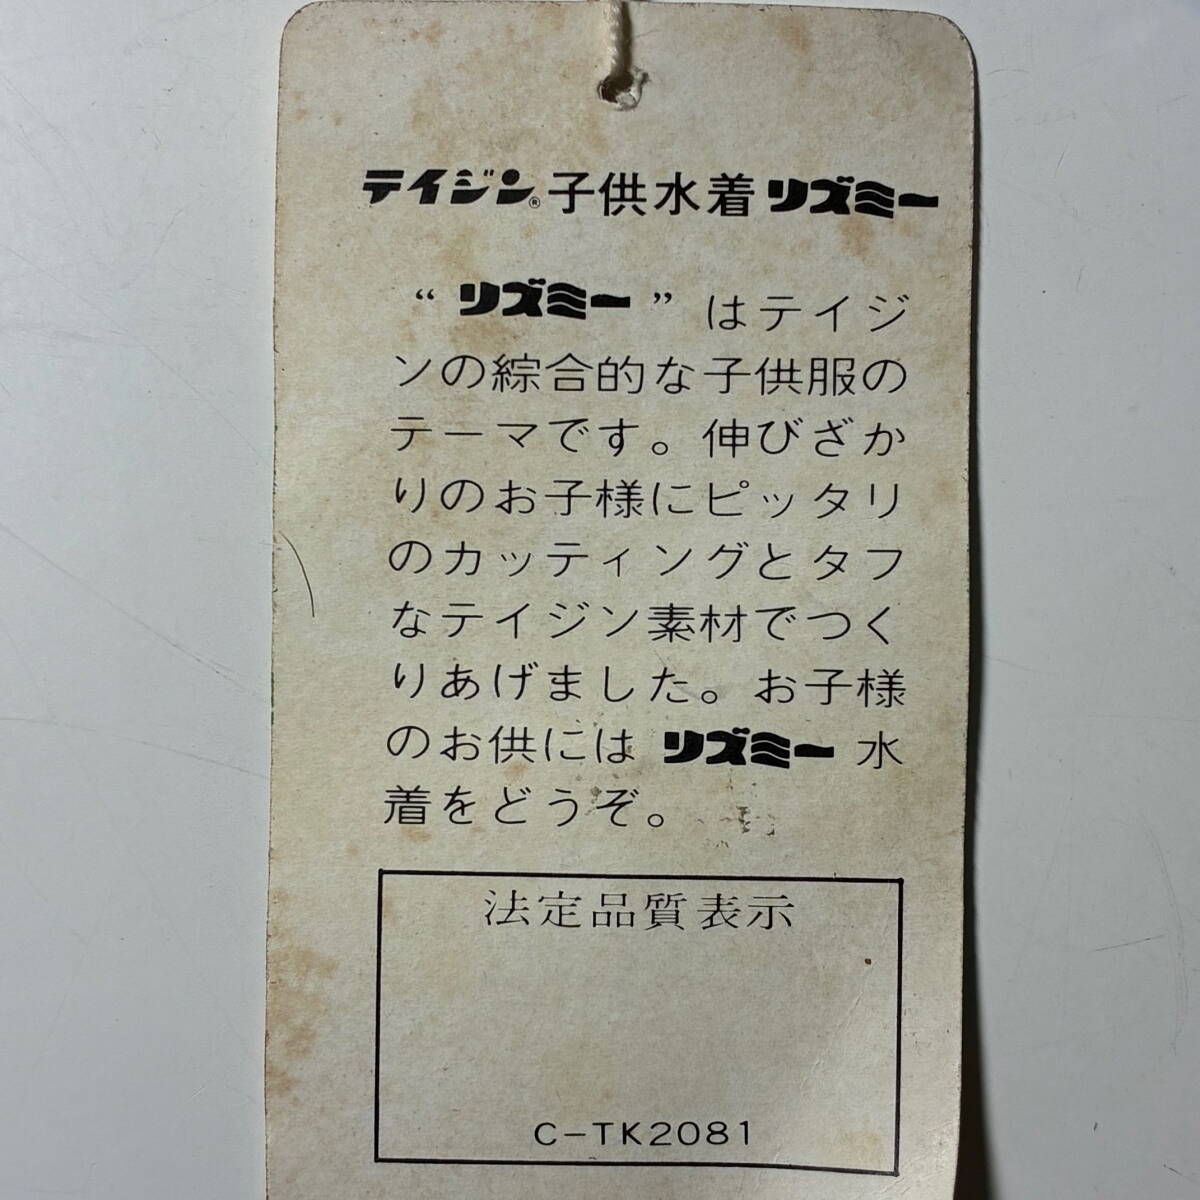 テイジン®子供水着リズミー
“リズミー”はテイジ
ンの綜合的な子供服の
テーマです。伸びざか
りのお子様にピッタリ
のカッティングとタフ
なテイジン素材でつく
りあげました。お子様
のお供にはリズミー水
着をどうぞ。
法定品質表示
C-TK2081